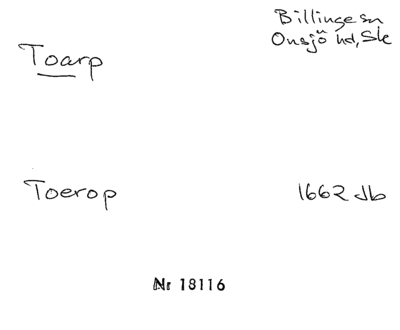 Billinge sn
Toarp
Onsjö hd, Sk
Toerop 1662 Jb
Nr 18116